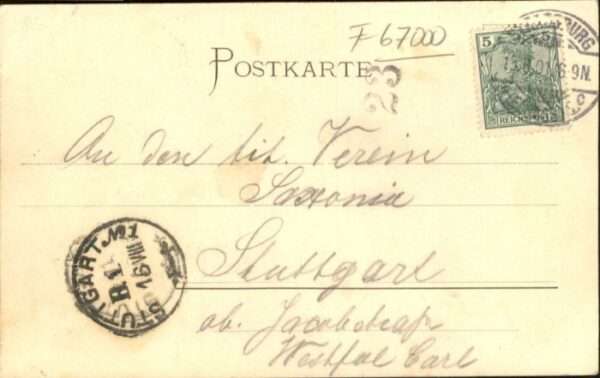 F 67000
POSTKARTE
23
5
REICHSPOST
BURG
6-9N.
An den tit. Verein
Saxonia
Stuttgart
ob. Jacobstraße
Westfäl
STUTTGART.No1
16 VIII